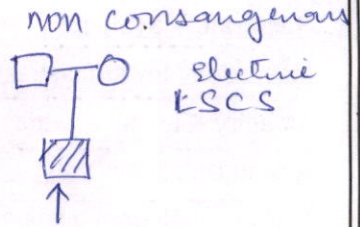 non consangenous
Elective
LSCS